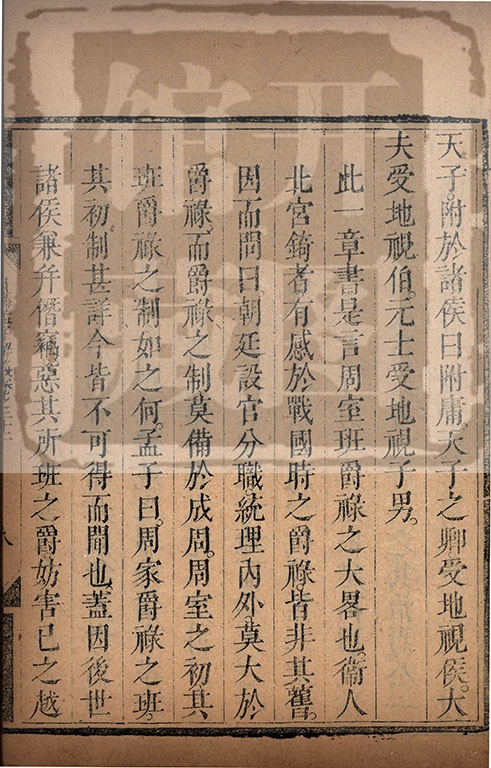 天子附於諸侯曰附庸。天子之卿受地視侯。大
夫受地視伯。元士受地視子男。
此一章書是言周室班爵祿之大畧也。衞人
北宮錡者有感於戰國時之爵祿。皆非其舊。
因而問曰朝廷設官分職。統理內外。莫大於
爵祿。而爵祿之制莫備於成周。周室之初其
班爵祿之制如之何。孟子曰。周家爵祿之班。
其初制甚詳今皆不可得而聞也蓋因後世
諸侯兼并僭竊。惡其所班之爵。妨害已之越